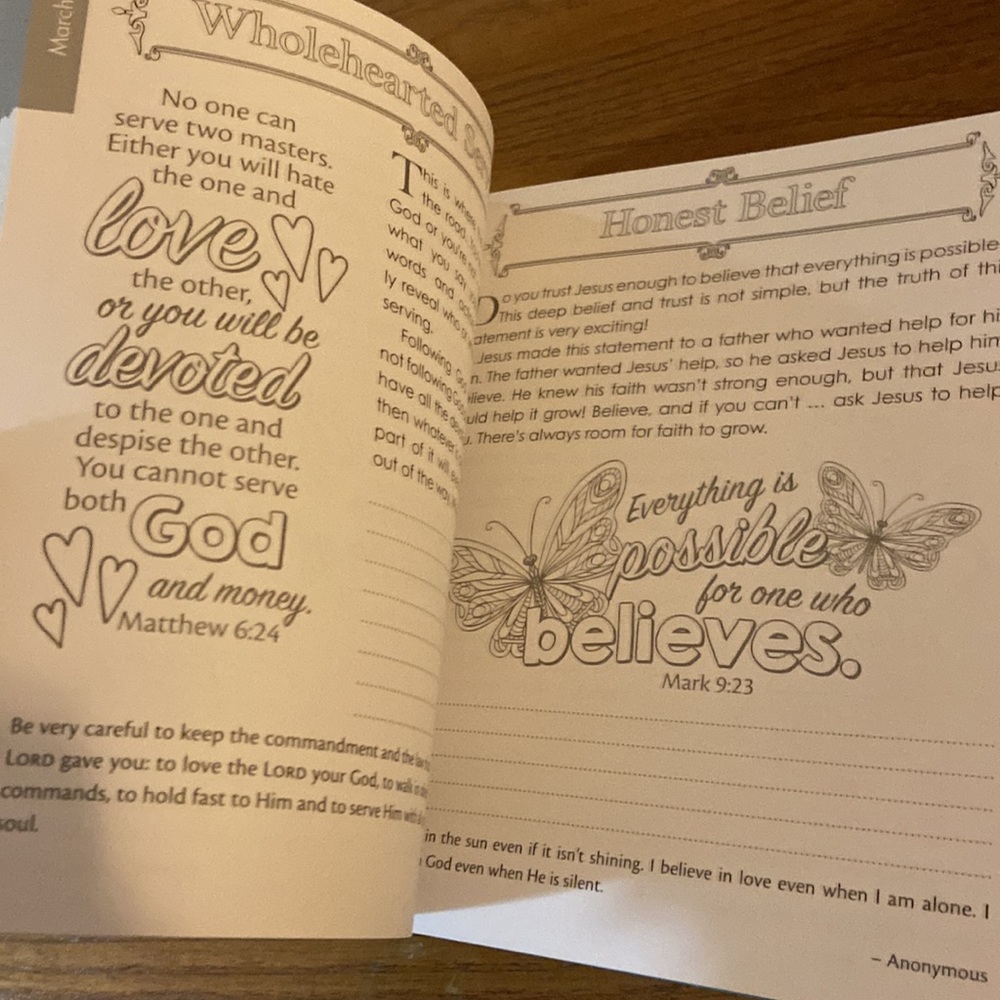 March
Wholehearted
No one can
serve two masters.
Either you will hate
the one and
love
the other,
or you will be
devoted
to the one and
despise the other.
You cannot serve
both God
and money.
Matthew 6:24
This is where
the road
God or you're not
what you say
words and
ly reveal who
serving.
Following
not following
have all the
then whatever
part of it will
out of the way
Be very careful to keep the commandment and the law
LORD gave you: to love the LORD your God, to walk in
commands, to hold fast to Him and to serve Him with
soul.
Honest Belief
Do you trust Jesus enough to believe that everything is possible
This deep belief and trust is not simple, but the truth of
atement is very exciting!
Jesus made this statement to a father who wanted help for
n. The father wanted Jesus' help, so he asked Jesus to help him
lieve. He knew his faith wasn't strong enough, but that
uld help it grow! Believe, and if you can't ... ask Jesus to help
u. There's always room for faith to grow.
Everything is
possible
for one who
believes.
Mark 9:23
in the sun even if it isn't shining. I believe in love even when I am alone. I
God even when He is silent.
– Anonymous